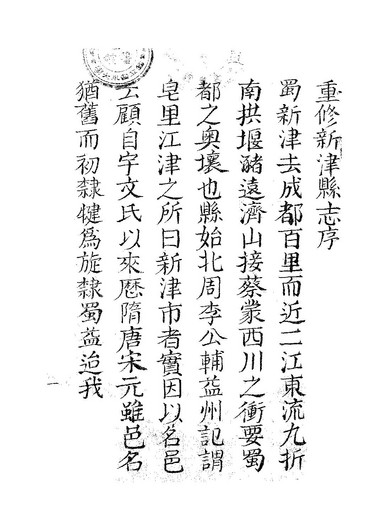 重修新津縣志序
蜀新津去成都百里而近二江東流九折
南拱堰瀦遠濟山接蔡蒙西川之衝要蜀
都之奥壤也縣始北周李公輔益州記謂
皂里江津之所曰新津市者實因以名邑
云顧自宇文氏以來歷隋唐宋元雖邑名
猶舊而初隸犍為旋隸蜀益迨我
一